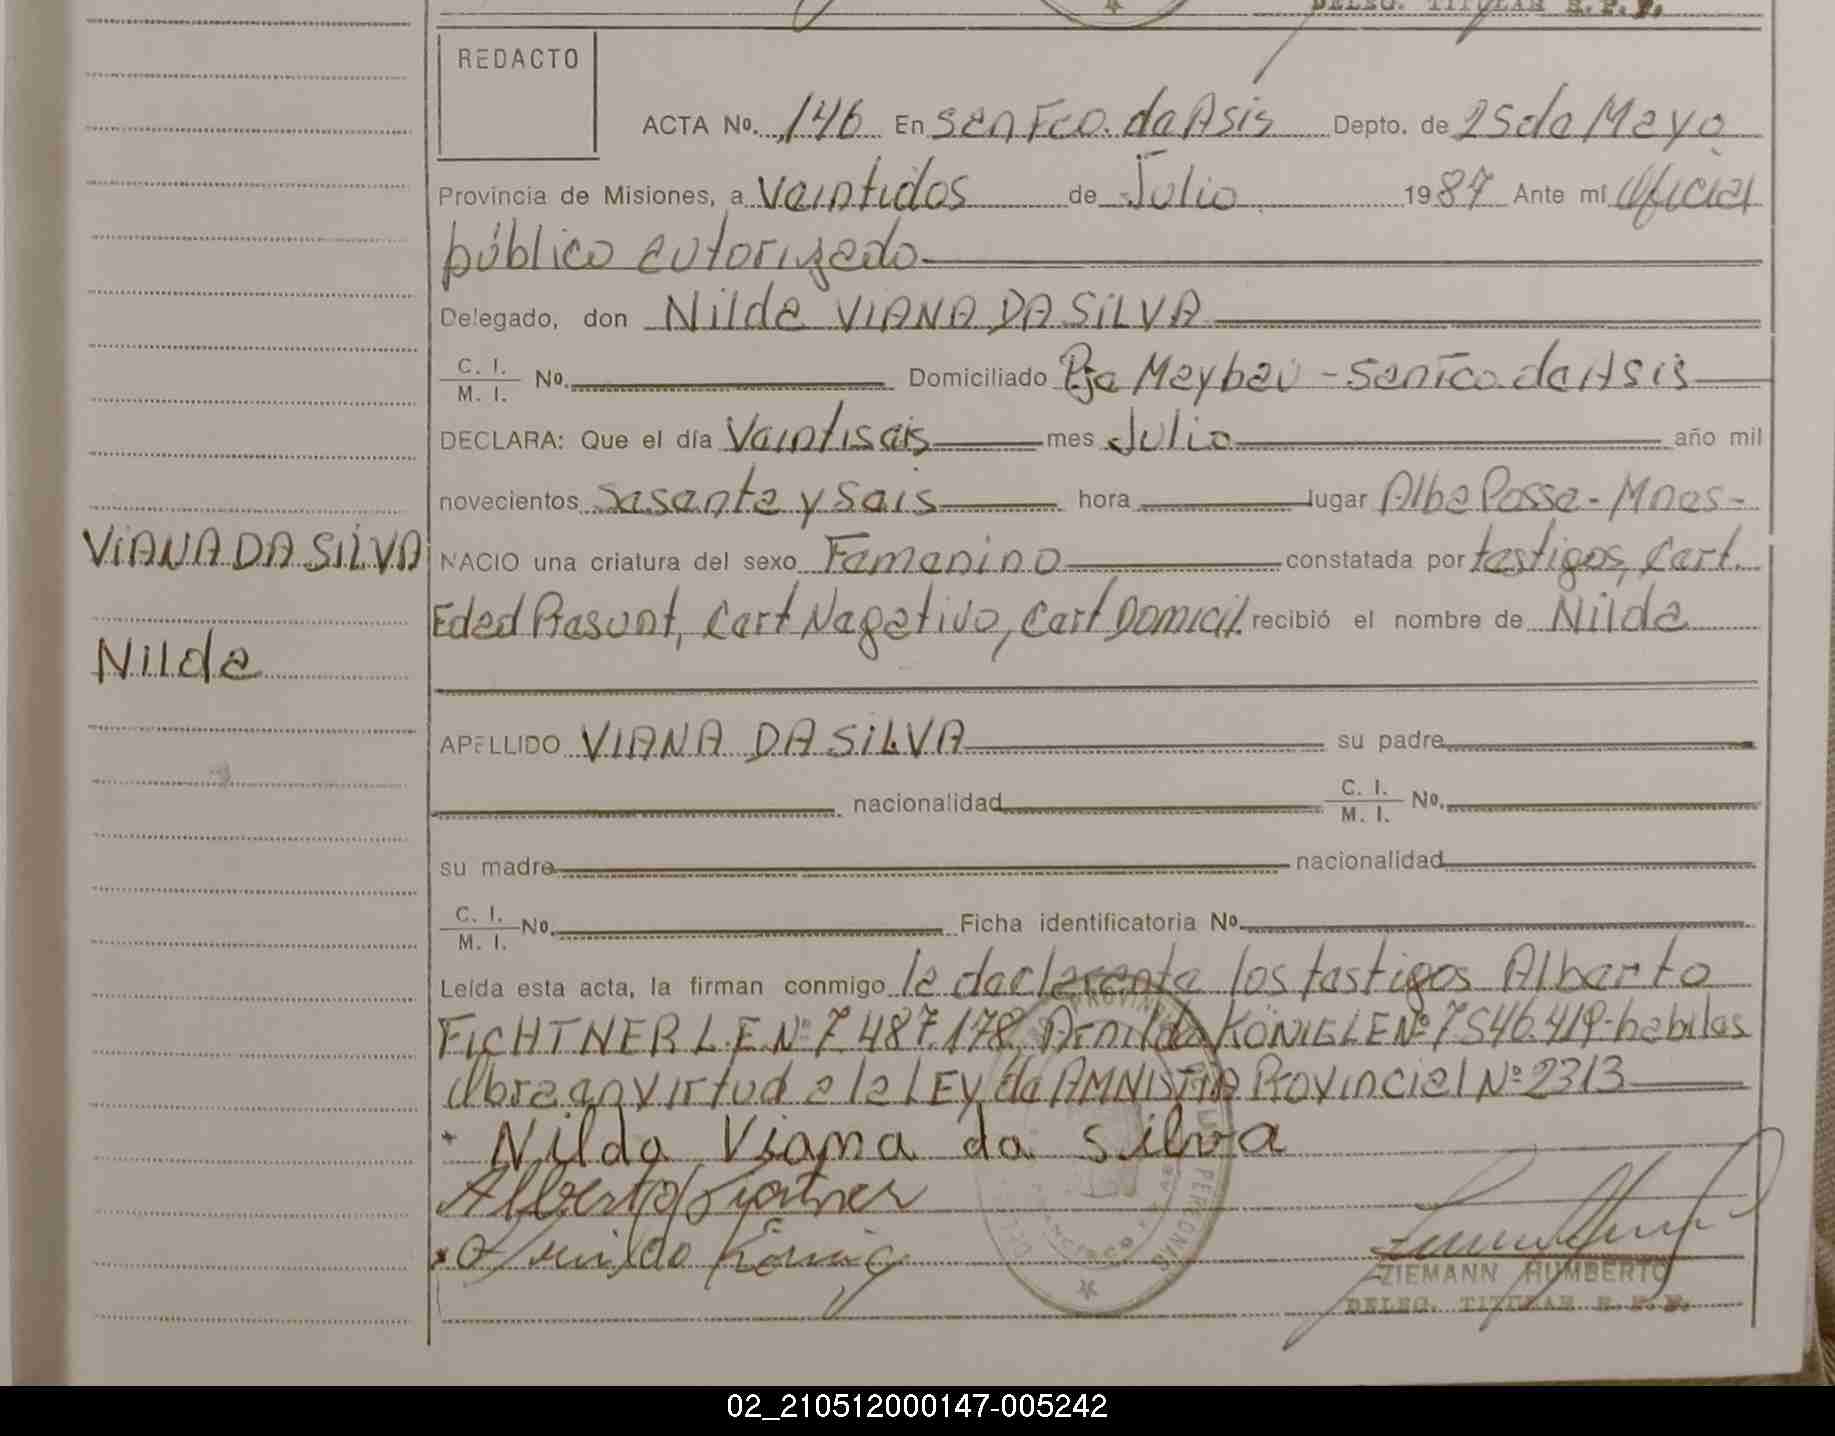 DELEG. TITULAR R. P. P.
REDACTO
ACTA Nº. 146 En San Fco. de Asis Depto. de 25 de Mayo
Provincia de Misiones, a Veintidos de Julio 1987 Ante mí Oficial
público autorizado
Delegado, don Nilda VIANA DA SILVA
C. I. / M. I. Nº. Domiciliado Pje Maybau - San Fco. de Asis
DECLARA: Que el día Veintiseis mes Julio año mil
novecientos Sesenta y Seis hora lugar Alba Posse - Mnes -
VIANA DA SILVA NACIO una criatura del sexo Femenino constatada por testigos, Cert.
Edad Presunt, Cert Negativo, Cert Domicil. recibió el nombre de Nilda
Nilda
APELLIDO VIANA DA SILVA su padre
nacionalidad C. I. / M. I. Nº.
su madre nacionalidad
C. I. / M. I. Nº. Ficha identificatoria Nº
Leída esta acta, la firman conmigo la declarante los testigos Alberto
FICHTNER L.E.Nº 7.487.178 Arnildo KÖNIG LE Nº 7.546.419- habiles
Labrada en virtud a la LEY de AMNISTIA Provincial Nº 2313
Nilda Viana da Silva
Alberto Fichtner
Arnildo König
ZIEMANN HUMBERTO
DELEG. TITULAR R. P. P.
02_210512000147-005242